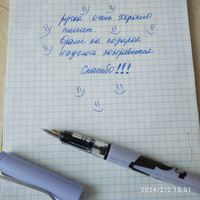 ручка очень хорошо
пишет
брали на подарок
надеюсь понравится
Спасибо!!!
2024/2/2 18:01